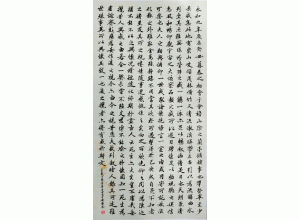 永和九年歲在癸丑暮春之初會于會稽山陰之蘭亭脩禊事也羣賢畢至少
長咸集此地有崇山峻領茂林脩竹又有清流激湍映帶左右引以為流觴曲水
列坐其次雖無絲竹管弦之盛一觴一詠亦足以暢敘幽情是日也天朗氣清
惠風和暢仰觀宇宙之大俯察品類之盛所以遊目騁懷足以極視聽之娛信
可樂也夫人之相與俯仰一世或取諸懷抱悟言一室之內或因寄所託放浪
形骸之外雖趣舍萬殊靜躁不同當其欣於所遇暫得於己快然自足不知老
之將至及其所之既惓情隨事遷感慨係之矣向之所欣俛仰之間以為陳迹
猶不能不以之興懷況脩短隨化終期於盡古人云死生亦大矣豈不痛哉每
攬昔人興感之由若合一契未嘗不臨文嗟悼不能喻之於懷固知一死生為
虛誕齊彭殤為妄作後之視今亦由今之視昔悲夫故列敘時人錄其所述雖
世殊事異所以興懷其致一也後之攬者亦將有感於斯文